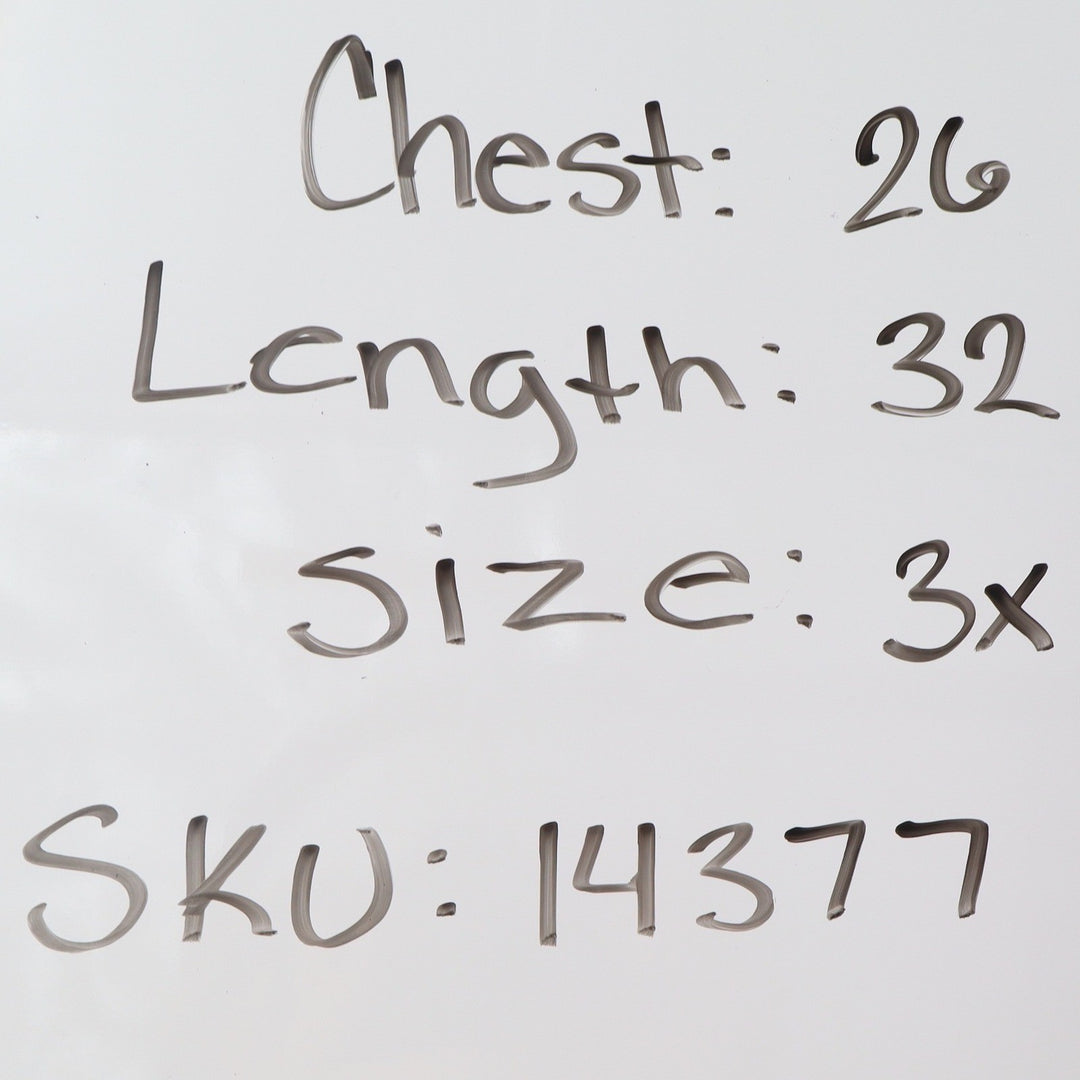 Chest: 26
Length: 32
Size: 3x
SKU: 14377